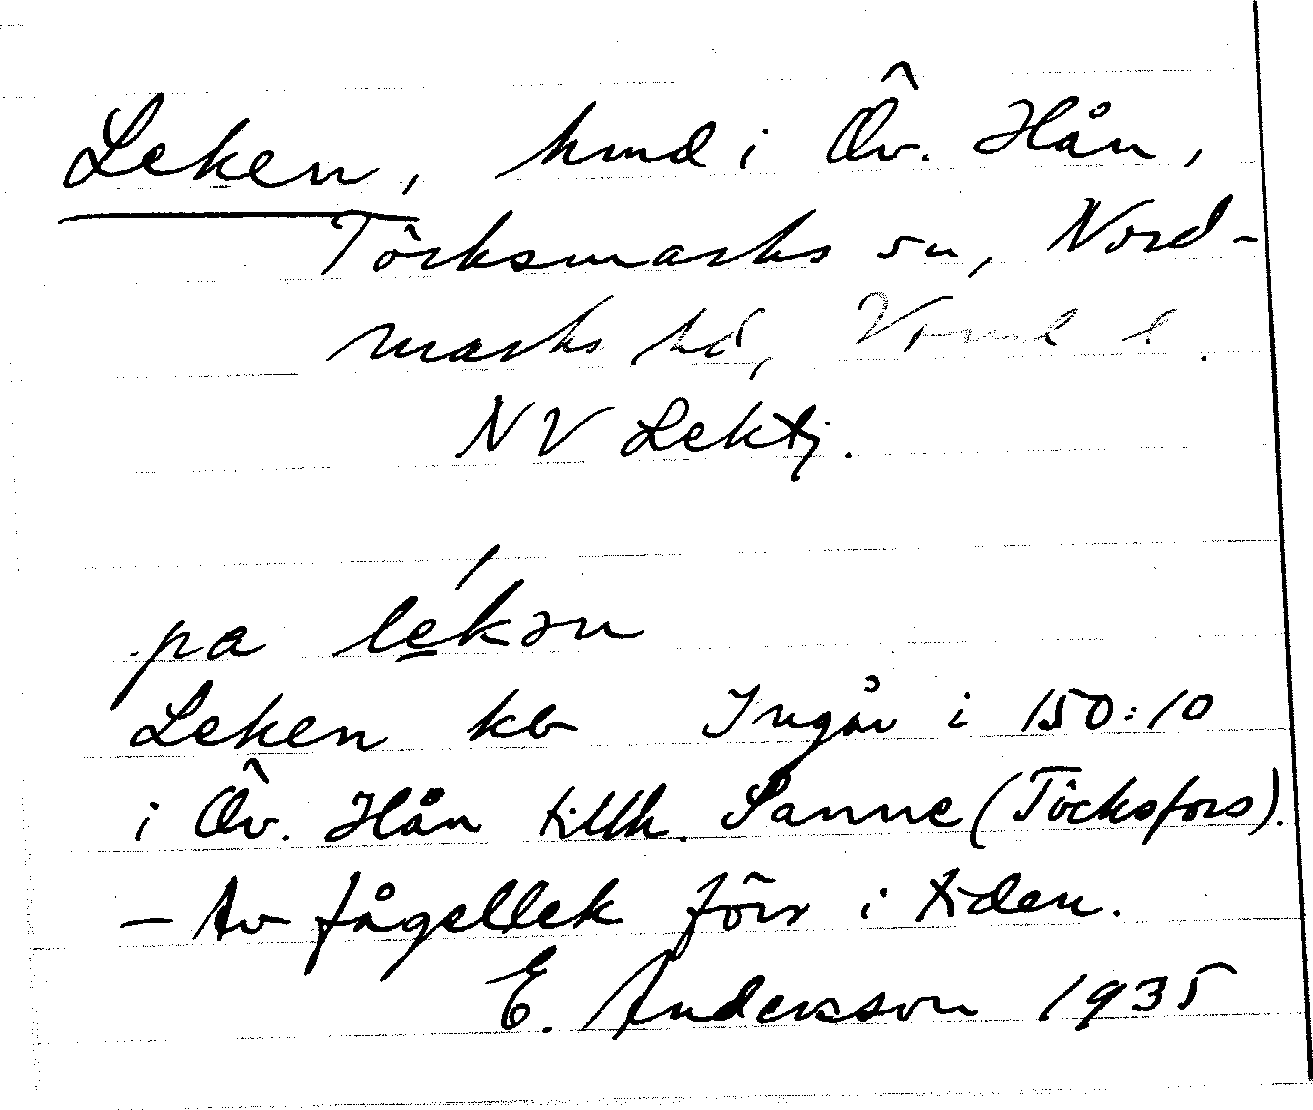 Leken, hmd i Öv. Hån,
Töcksmarks sn, Nord-
marks hd, Värml l.
NV Lektj.
på le̲´kən
Leken kb Ingår i 150:10
i Öv. Hån tillh. Sanne (Töcksfors).
– Av fågellek förr i tiden.
E. Andersson 1935